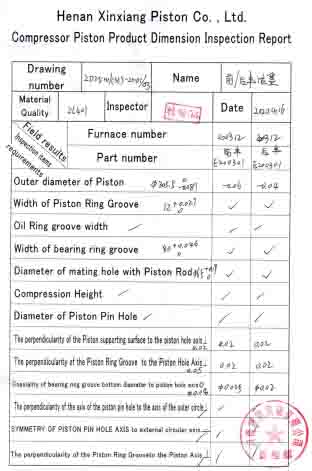 Henan Xinxiang Piston Co. , Ltd.
Compressor Piston Product Dimension Inspection Report
Drawing number
Name
Material Quality
ZL401
Inspector
Date
Field results
Inspection items requirements
Furnace number
200312
200312
Part number
E200301
E200301
Outer diameter of Piston
-0.06
-0.04
Width of Piston Ring Groove
12 +0.027 0
✓ ✓
Oil Ring groove width
/ / /
Width of bearing ring groove
80 +0.046 0
✓ ✓
Diameter of mating hole with Piston Rod
✓ ✓
Compression Height
/ / /
Diameter of Piston Pin Hole
/ / /
The perpendicularity of the Piston supporting surface to the piston hole axis ⊥ 0.02
0.02
0.02
The perpendicularity of the Piston Ring Groove to the Piston Hole Axis ⊥ 0.05
0.02
0.02
Coaxiality of bearing ring groove bottom diameter to piston hole axis
The perpendicularity of the axis of the piston pin hole to the axis of the outer circle ⊥
/ /
SYMMETRY OF PISTON PIN HOLE AXIS to external circular axis
/
The perpendicularity of the Piston Ring Groove to the Piston Axis ⊥
/